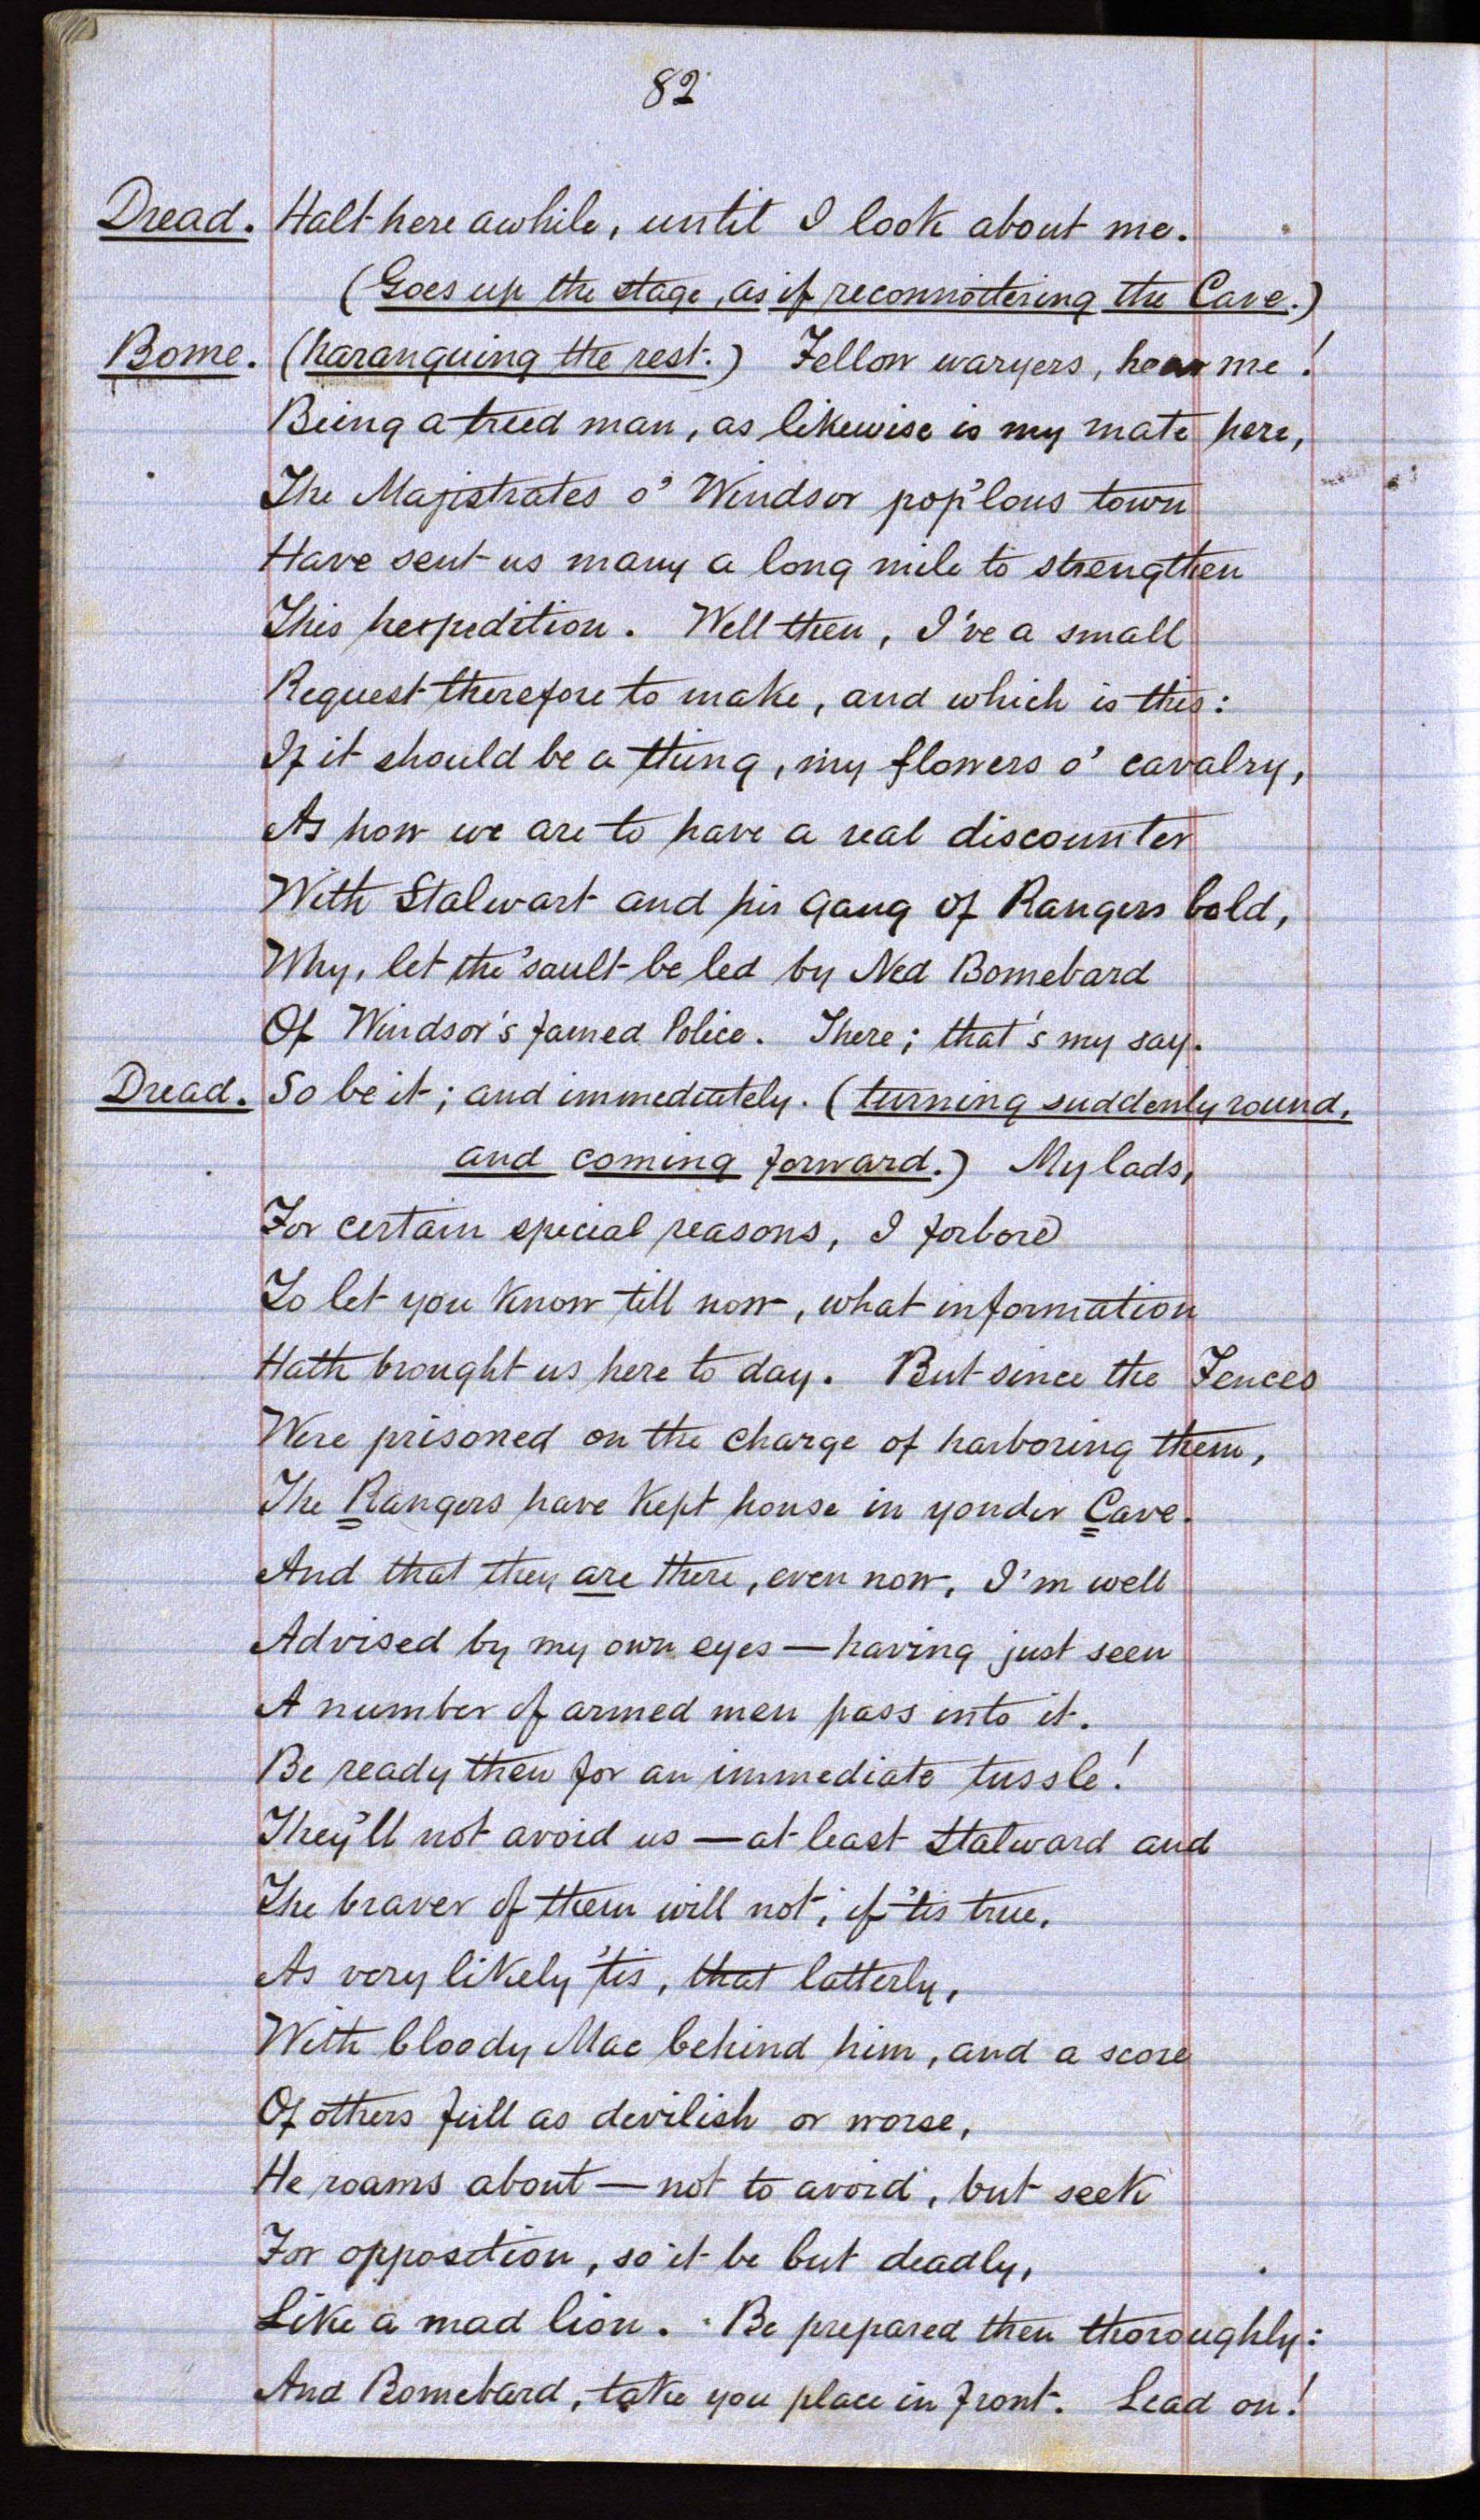 82
Dread. Halt here awhile, until I look about me.
(Goes up the stage, as if reconnoitering the Cave.)
Bome. (haranguing the rest.) Fellow waryers, hear me!
Being a treed man, as likewise is my mate here,
The Majistrates o' Windsor pop'lous town
Have sent us many a long mile to strengthen
This hexpedition. Well then, I've a small
Request therefore to make, and which is this:
If it should be a thing, my flowers o' cavalry,
As how we are to have a real discounter
With Stalwart and his gang of Rangers bold,
Why, let the 'sault be led by Ned Bomebard
Of Windsor's famed Police. There; that's my say.
Dread. So be it; and immediately. (turning suddenly round,
and coming forward.) My lads,
For certain special reasons, I forbore
To let you know till now, what information
Hath brought us here to day. But since the Fences
Were prisoned on the charge of harboring them,
The Rangers have kept house in yonder Cave.
And that they are there, even now, I'm well
Advised by my own eyes—having just seen
A number of armed men pass into it.
Be ready then for an immediate tussle!
They'll not avoid us—at least Stalward and
The braver of them will not; if 'tis true,
As very likely 'tis, that latterly,
With bloody Mac behind him, and a score
Of others full as devilish or worse,
He roams about—not to avoid, but seek
For opposition, so it be but deadly,
Like a mad lion. Be prepared then thoroughly:
And Bomebard, take you place in front. Lead on!